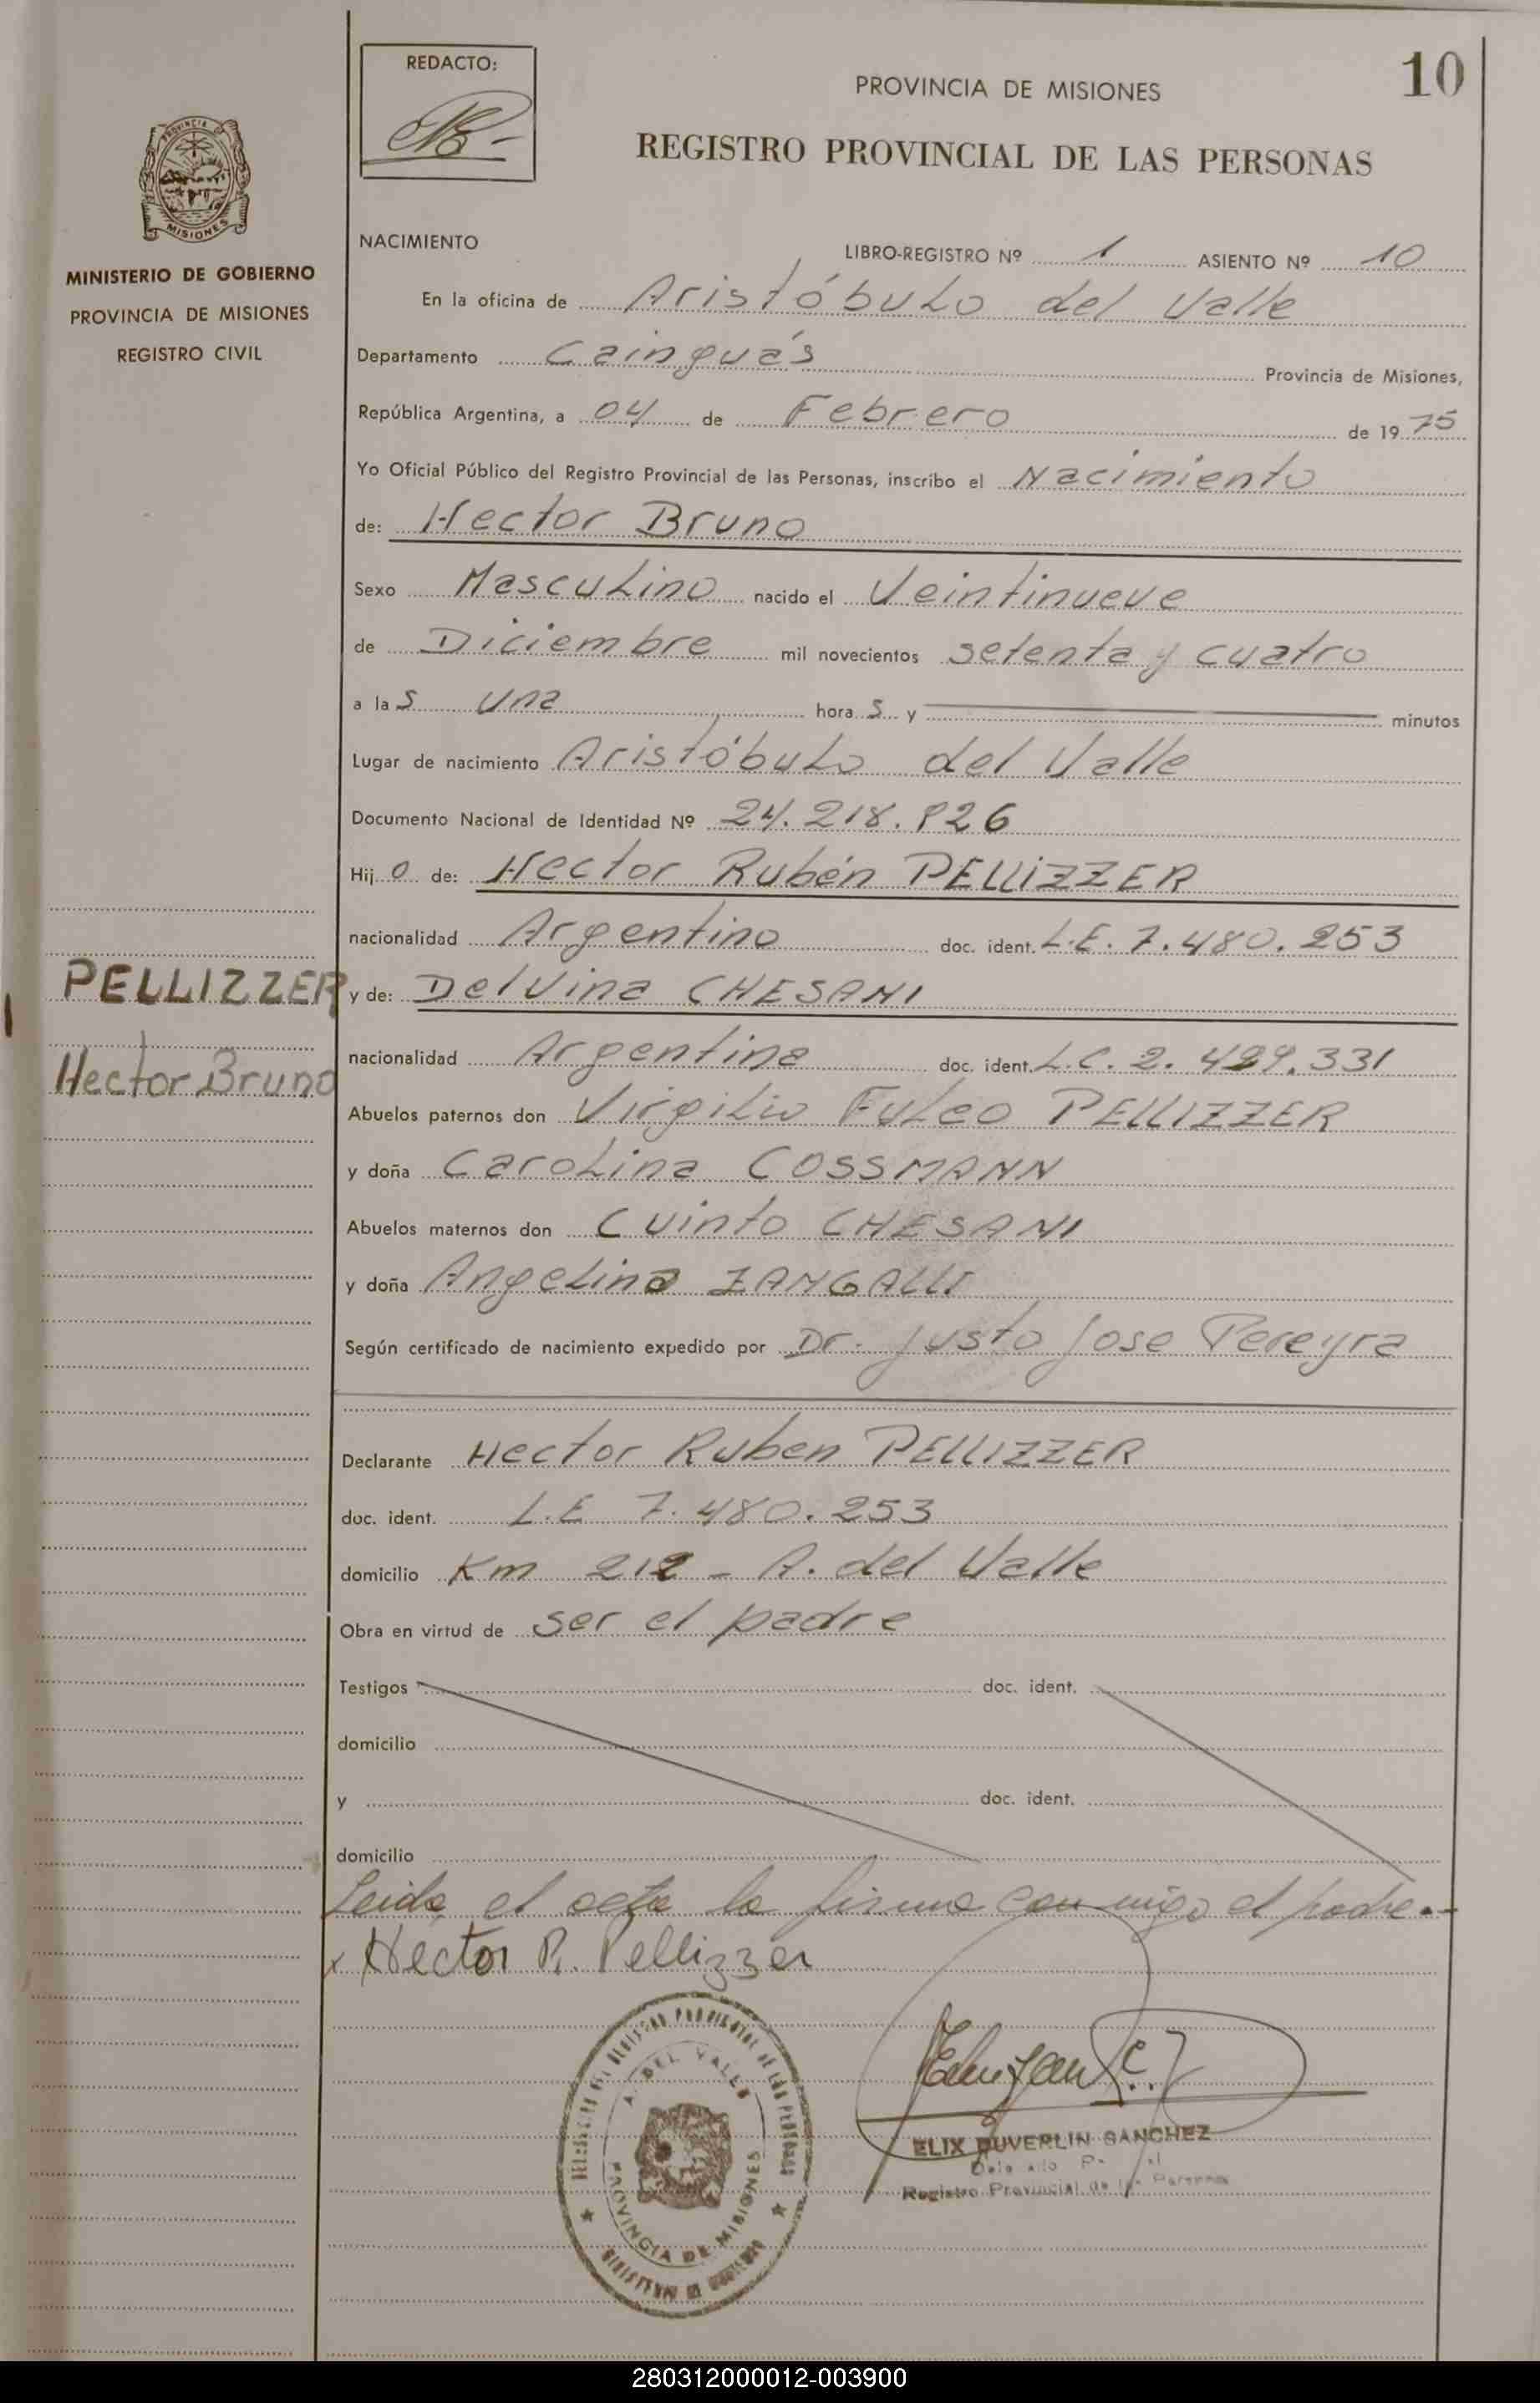 10
REDACTO:
PROVINCIA DE MISIONES
REGISTRO PROVINCIAL DE LAS PERSONAS
PROVINCIA
MISIONES
MINISTERIO DE GOBIERNO
PROVINCIA DE MISIONES
REGISTRO CIVIL
NACIMIENTO
LIBRO-REGISTRO Nº 1 ASIENTO Nº 10
En la oficina de Aristóbulo del Valle
Departamento Cainguás Provincia de Misiones,
República Argentina, a 04 de Febrero de 1975
Yo Oficial Público del Registro Provincial de las Personas, inscribo el Nacimiento
de: Hector Bruno
Sexo Masculino nacido el Veintinueve
de Diciembre mil novecientos setenta y cuatro
a las una horas y minutos
Lugar de nacimiento Aristóbulo del Valle
Documento Nacional de Identidad Nº 24.218.826
Hijo de: Hector Rubén PELLIZZER
nacionalidad Argentino doc. ident. L.E. 7.480.253
PELLIZZER
y de: Delvina CHESANI
Hector Bruno
nacionalidad Argentina doc. ident. L.C. 2.
Abuelos paternos don Virgilio Fulco PELLIZZER
y doña Carolina COSSMANN
Abuelos maternos don Cuinto CHESANI
y doña Angelina ZANGALLI
Según certificado de nacimiento expedido por Dr. Justo Jose Pereyra
Declarante Hector Ruben PELLIZZER
doc. ident. L.E 7.480.253
domicilio Km 212 - A. del Valle
Obra en virtud de ser el padre
Testigos doc. ident.
domicilio
y doc. ident.
domicilio
Leida el acta la firma conmigo el padre.-
x Hector R. Pellizzer
A. DEL VALLE
PROVINCIA DE MISIONES
ELIX DUVERLIN SANCHEZ
Registro Provincial de las Personas
280312000012-003900